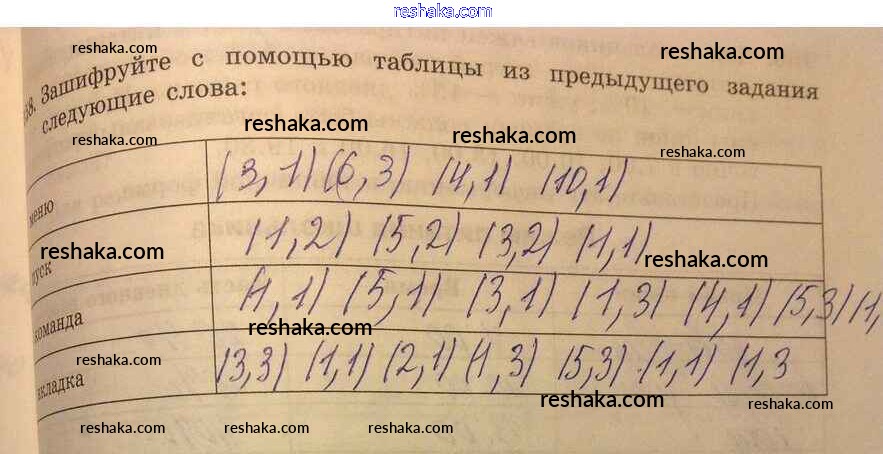 reshaka.com
reshaka.com
38. Зашифруйте с помощью таблицы из предыдущего задания
следующие слова:
reshaka.com
reshaka.com
reshaka.com
reshaka.com
меню (3,1) (6,3) (4,1) (10,1)
пуск (1,2) (5,2) (3,2) (1,1)
reshaka.com
reshaka.com
команда (1,1) (5,1) (3,1) (1,3) (4,1) (5,3) (1,
reshaka.com
вкладка (3,3) (1,1) (2,1) (1,3) (5,3) (1,1) (1,3
reshaka.com
reshaka.com
reshaka.com
reshaka.com
reshaka.com
reshaka.com